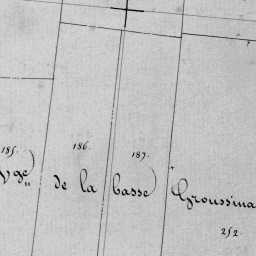 185. 186. 187.
yge) de la basse) Groussina
252.